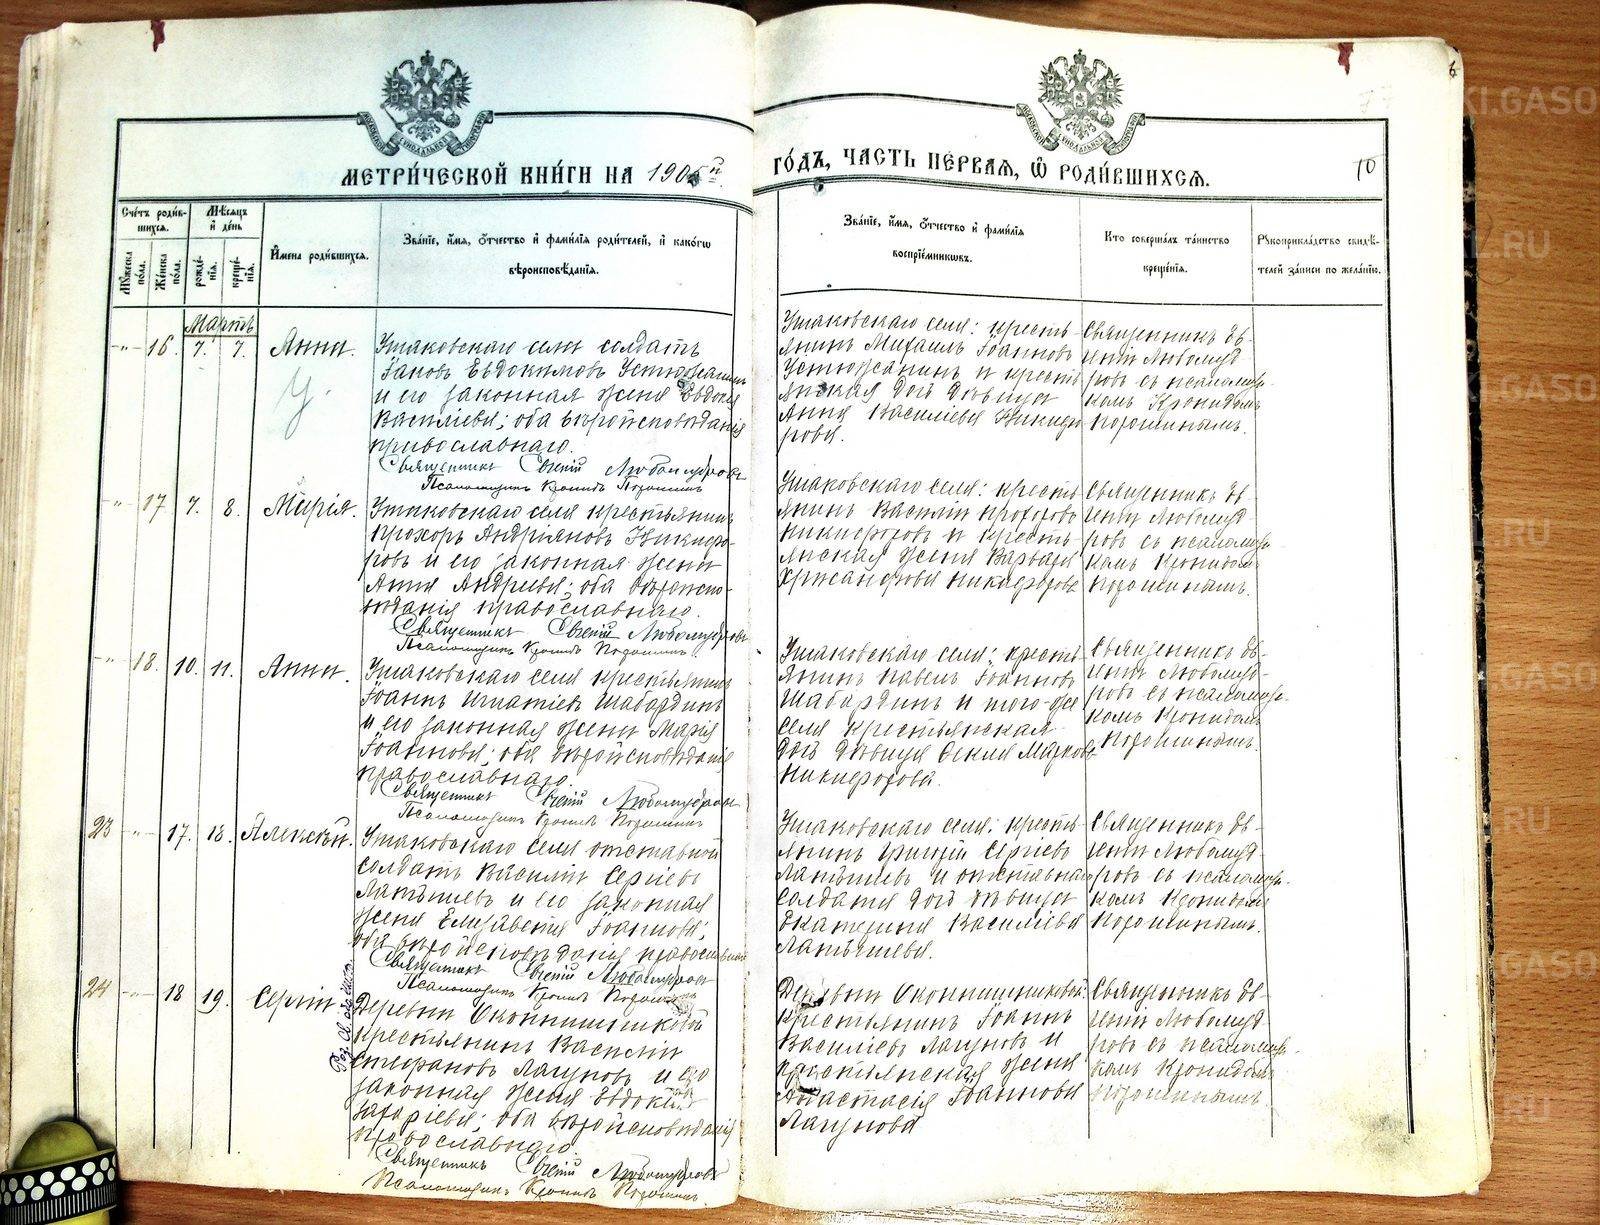 МЕТРИ́ЧЕСКОЙ КНИ́ГИ НА 1905й
ГО́ДЪ, ЧАСТЬ ПЕ́РВАЯ, Ѡ҆ РОДИ́ВШИХСЯ.
10
Сче́тъ роди́в-
шихся.
Мѣ́сяцъ
и҆ де́нь
Мꙋ́жеска по́ла.
Же́нска по́ла.
рожде́-
нїѧ.
креще́-
нїѧ.
И҆мена роди́вшихся.
Зва́нїе, и҆́мя, ѻ҆́тчество и҆ фами́лїя роди́телей, и҆ како́гѡ
вѣроисповѣ́данїя.
Зва́нїе, и҆́мя, ѻ҆́тчество и҆ фами́лїя
воспрїе́мниковъ.
Кто соверша́лъ та́инство
креще́нїя.
Рꙋкоприкла́дство свидѣ́-
телей за́писи по жела́нїю.
Мартъ
16. 7. 7. Анна.
Ушаковскаго села солдатъ
Іаковъ Евдокимовъ Устюжанинъ
и его законная жена Евдокія
Василіева; оба вѣроисповѣданія
православнаго.
Священникъ Евгеній Любомудровъ
Псаломщикъ Кронидъ Порошинъ
Ушаковскаго села: кресть-
янинъ Михаилъ Іоанновъ
Устюжанинъ и кресть-
янская дочь дѣвица
Анна Василіева Никифо-
рова.
Священникъ Ев-
геній Любомуд-
ровъ съ псаломщи-
комъ Кронидомъ
Порошинымъ.
17 7. 8. Марія.
Ушаковскаго села крестьянинъ
Прохоръ Андріяновъ Никифо-
ровъ и его законная жена
Анна Андреева; оба вѣроиспо-
вѣданія православнаго.
Священникъ Евгеній Любомудровъ
Псаломщикъ Кронидъ Порошинъ
Ушаковскаго села: кресть-
янинъ Василій Прохоровъ
Никифоровъ и кресть-
янская жена Варвара
Хрисанфова Никифорова
Священникъ Ев-
геній Любомуд-
ровъ съ псаломщи-
комъ Кронидомъ
Порошинымъ.
18. 10. 11. Анна.
Ушаковскаго села крестьянинъ
Іоаннъ Игнатіевъ Шабардинъ
и его законная жена Марія
Іоаннова; оба вѣроисповѣданія
православнаго.
Священникъ Евгеній Любомудровъ
Псаломщикъ Кронидъ Порошинъ
Ушаковскаго села: кресть-
янинъ Павелъ Іоанновъ
Шабардинъ и того-же
села крестьянская
дочь дѣвица Фекла Маркова
Никифорова.
Священникъ Ев-
геній Любомуд-
ровъ съ псаломщи-
комъ Кронидомъ
Порошинымъ.
23 17. 18. Алексѣй.
Ушаковскаго села отставной
солдатъ Василій Сергіевъ
Латышевъ и его законная
жена Елизавета Іоаннова;
оба вѣроисповѣданія православнаго
Священникъ Евгеній Любомудровъ
Псаломщикъ Кронидъ Порошинъ
Ушаковскаго села: кресть-
янинъ Григорій Сергіевъ
Латышевъ и отставнаго
солдата дочь дѣвица
Екатерина Василіева
Латышева.
Священникъ Ев-
геній Любомуд-
ровъ съ псаломщи-
комъ Кронидомъ
Порошинымъ.
24 18 19. Сергій.
Деревни Оконишниковой
крестьянинъ Василій
Стефановъ Лагуновъ и его
законная жена Евдокія
Захаріева; оба вѣроисповѣданія
православнаго.
Священникъ Евгеній Любомудровъ
Псаломщикъ Кронидъ Порошинъ
Деревни Оконишниковой
крестьянинъ Іоаннъ
Василіевъ Лагуновъ и
крестьянская жена
Анастасія Іоаннова
Лагунова
Священникъ Ев-
геній Любомуд-
ровъ съ псаломщи-
комъ Кронидомъ
Порошинымъ.